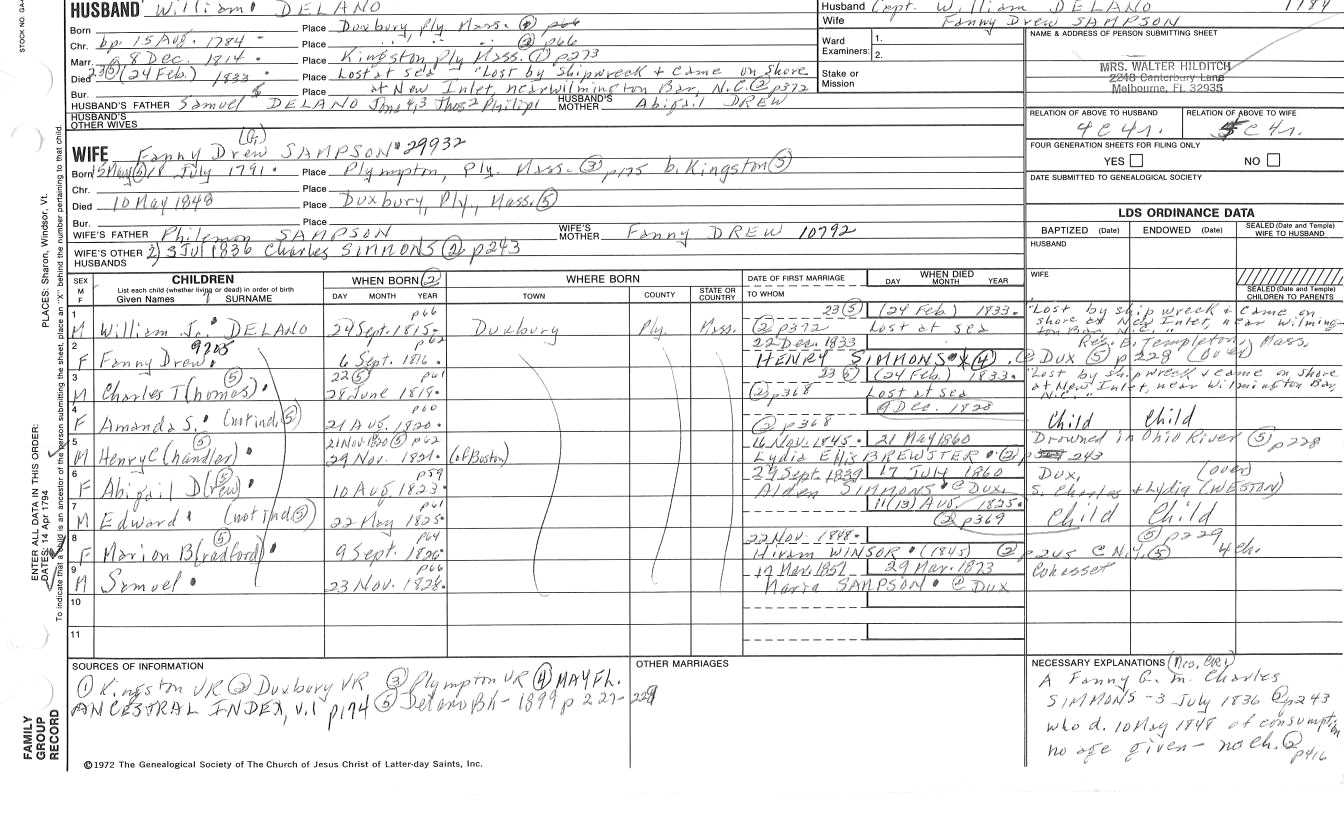 HUSBAND William DELANO
Husband Capt. William DELANO 1784
Wife Fanny Drew SAMPSON
Born Place Duxbury, Ply, Mass. ② p66
Chr. bp. 15 Aug. 1784 Place " " " ② p66
Marr. 8 Dec. 1814 Place Kingston, Ply, Mass. ① p273
Died 23⑤ (24 Feb.) 1833 Place Lost at sea "Lost by shipwreck & came on shore
Bur. Place at New Inlet, near Wilmington Bar, N.C. ② p372
HUSBAND'S FATHER Samuel DELANO HUSBAND'S MOTHER Abigail DREW
HUSBAND'S OTHER WIVES
Ward Examiners: 1. 2.
Stake or Mission
NAME & ADDRESS OF PERSON SUBMITTING SHEET
MRS. WALTER HILDITCH
2248 Canterbury Lane
Melbourne, FL 32935
RELATION OF ABOVE TO HUSBAND RELATION OF ABOVE TO WIFE
4C4r. 5C4r.
FOUR GENERATION SHEETS FOR FILING ONLY
YES NO
DATE SUBMITTED TO GENEALOGICAL SOCIETY
WIFE Fanny Drew SAMPSON 29932
Born 15 May ⑤ July 1791 Place Plympton, Ply. Mass. ③ p175 b. Kingston ⑤
Chr. Place
Died 10 May 1848 Place Duxbury, Ply., Mass. ⑤
Bur. Place
WIFE'S FATHER Philemon SAMPSON WIFE'S MOTHER Fanny DREW 10792
WIFE'S OTHER HUSBANDS 2) 3 Jul 1836 Charles SIMMONS ② p243
LDS ORDINANCE DATA
BAPTIZED (Date) ENDOWED (Date) SEALED (Date and Temple) WIFE TO HUSBAND
HUSBAND
WIFE
SEALED (Date and Temple) CHILDREN TO PARENTS
SEX M F
CHILDREN
List each child (whether living or dead) in order of birth
Given Names SURNAME
WHEN BORN ②
DAY MONTH YEAR
WHERE BORN
TOWN COUNTY STATE OR COUNTRY
DATE OF FIRST MARRIAGE
TO WHOM
WHEN DIED
DAY MONTH YEAR
1 M William Jr. DELANO p66 24 Sept. 1815 Duxbury Ply. Mass. ② p372 23⑤ (24 Feb.) 1833. Lost at sea "Lost by shipwreck & came on shore at New Inlet, near Wilmington Bar, N.C."
2 F Fanny Drew 9705 p62 6 Sept. 1816 22 Dec. 1833 HENRY SIMMONS ④ @ Dux ⑤ p228 (over)
3 M Charles T(homas) ⑤ 22⑤ p61 28 June 1819 ② p368 23⑤ (24 Feb.) 1833. Lost at sea "Lost by shipwreck & came on shore at New Inlet, near Wilmington Bar, N.C."
4 F Amanda S. (not ind. ⑤) p60 21 Aug. 1820 ② p368 9 Dec. 1828 Child Child
5 M Henry C(handler) ⑤ 21 Nov 1820 ⑤ p62 29 Nov. 1821 (of Boston) 16 Nov. 1845 21 May 1860 Lydia Ellis BREWSTER ② p243 Drowned in Ohio River ⑤ p228
6 F Abigail D(rew) ⑤ p59 10 Aug. 1823 29 Sept. 1839 17 July 1860 Alden SIMMONS @ Dux, Dux, (over) S. Charles & Lydia (WESTON)
7 M Edward (not ind ⑤) p61 22 May 1825 11(13) Aug. 1825 ② p369 Child Child
8 F Marion B(radford) ⑤ p64 9 Sept. 1826 22 Nov. 1848 Hiram WINSOR (1845) ② p245 @ N.Y. ⑤ 4 ch. ⑤ p229
9 M Samuel p66 23 Nov. 1828 29 Mar. 1873 Maria SAMPSON @ Dux Cohasset
10
11
SOURCES OF INFORMATION
① Kingston VR ② Duxbury VR ③ Plympton VR ④ MAY FL.
ANCESTRAL INDEX, V.1 p174 ⑤ Delano Bk - 1899 p 227-229
OTHER MARRIAGES
NECESSARY EXPLANATIONS
A Fanny C. m. Charles
SIMMONS - 3 July 1836 ② p243
who d. 10 May 1848 of consumption
no age given - no ch. ② p416
©1972 The Genealogical Society of The Church of Jesus Christ of Latter-day Saints, Inc.
FAMILY GROUP RECORD
ENTER ALL DATA IN THIS ORDER:
DATES: 14 Apr 1794
PLACES: Sharon, Windsor, Vt.
To indicate that a child is an ancestor of the person submitting the sheet, place an "X" behind the number pertaining to that child.